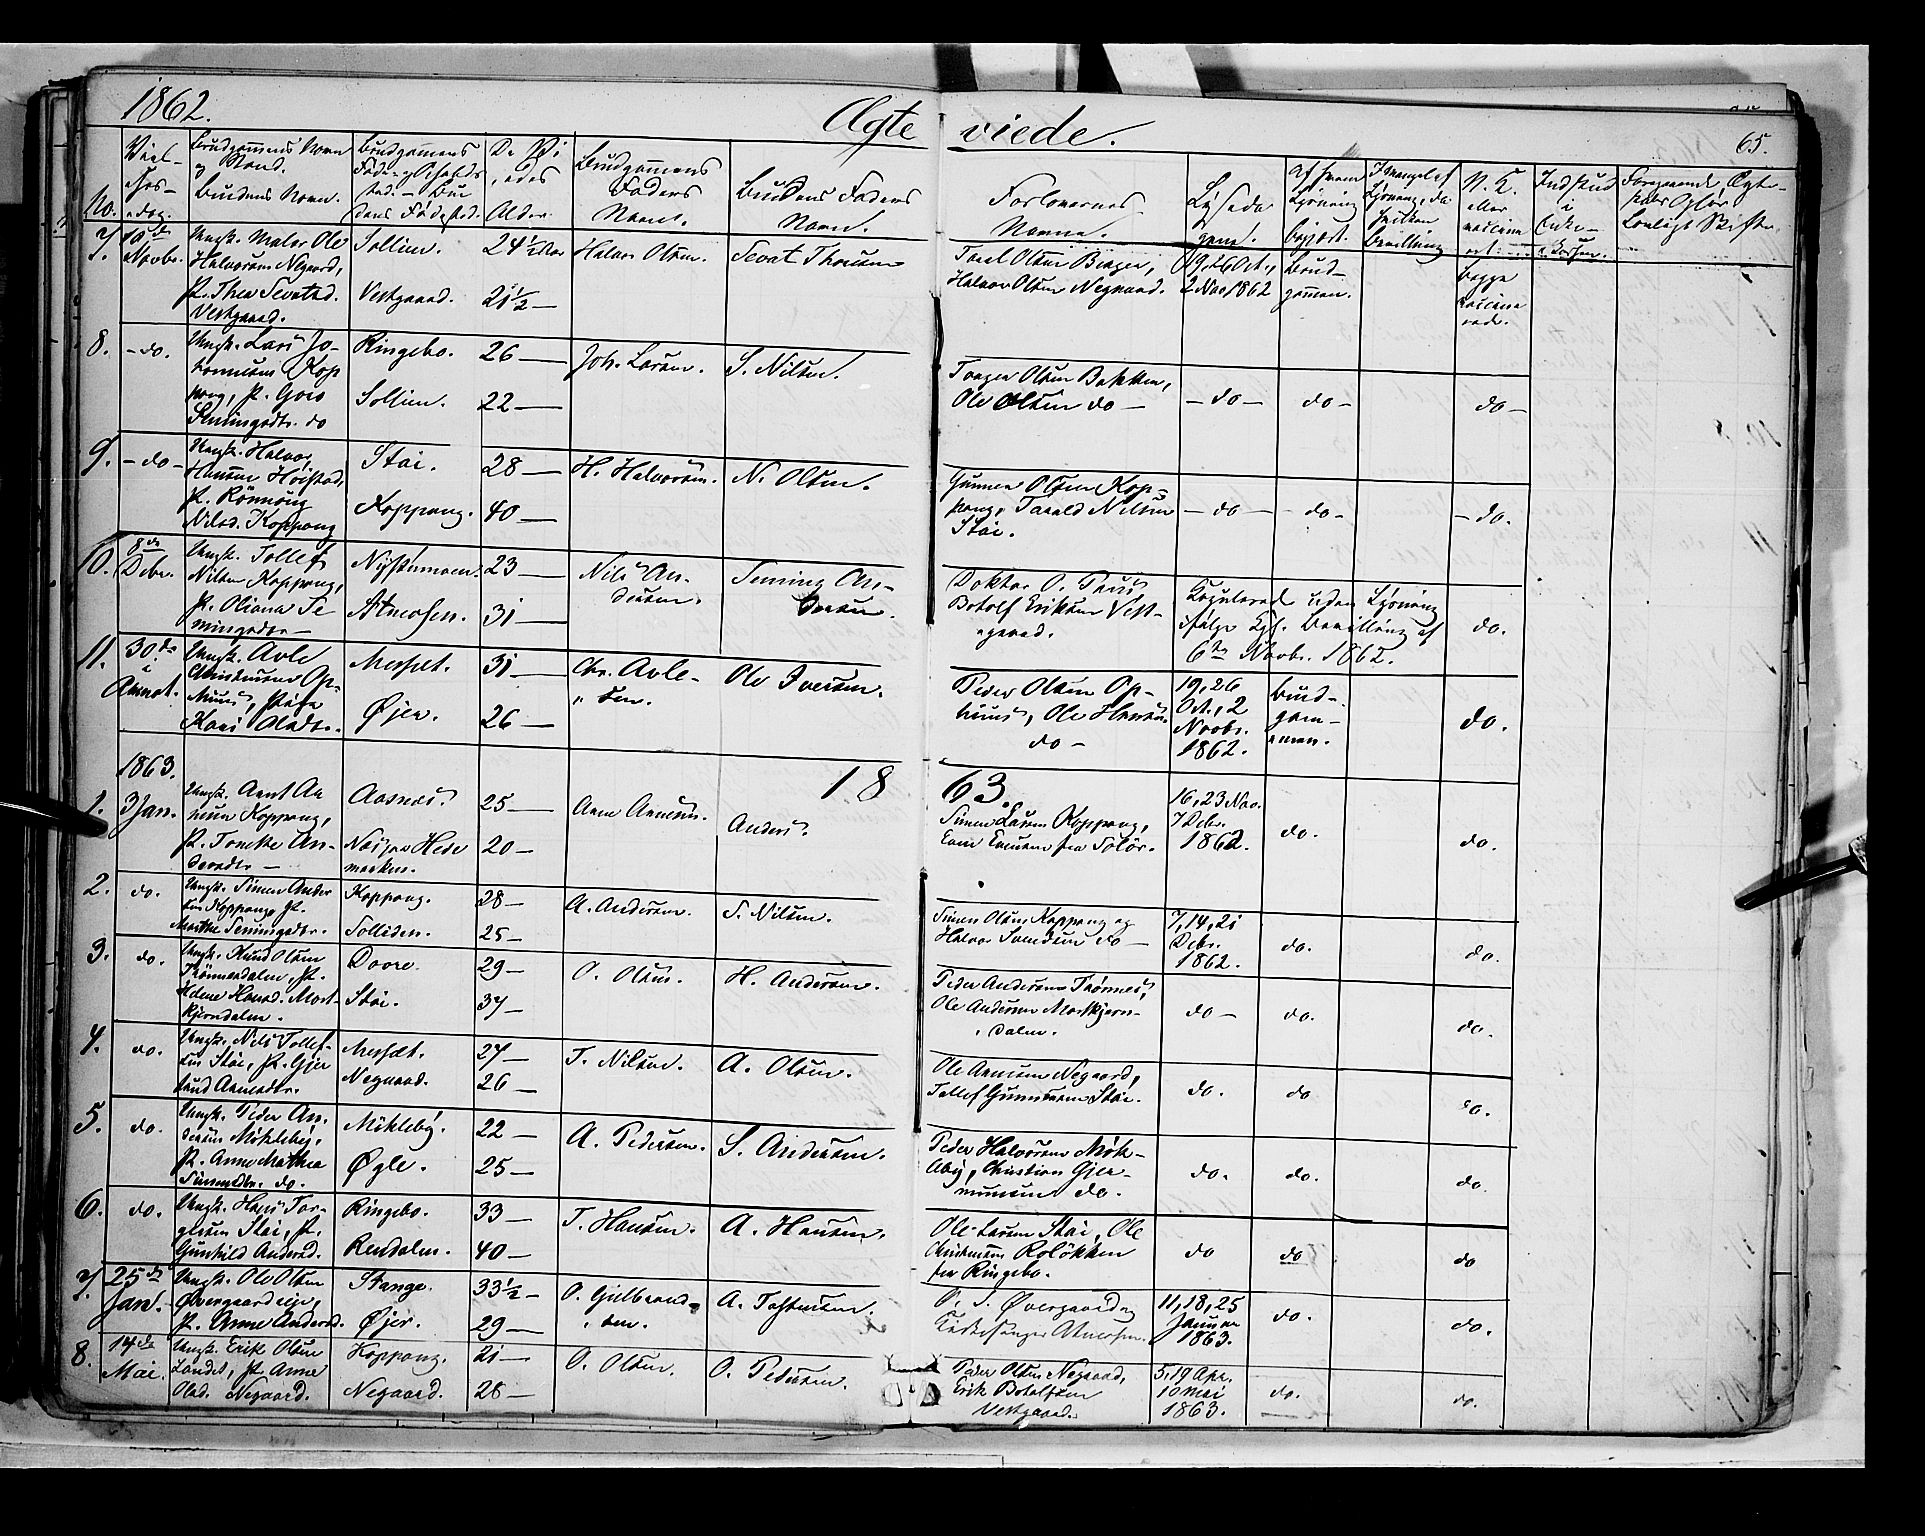 1862.
Ægte viede.
65.
No.
Viel-
ses-
dag.
Brudgommens Navn
og Stand.
Brudens Navn.
Brudgommens
De Vi
edes
Alder.
Brudgommens
Faders
Navn.
Brudens Faders
Navn.
Forlovernes
Navne.
Lysnings
Af hvem
Lysning
begjært.
Bevilling
N. K.
eller
Indstud
i
7.
Novbr.
Ungk. Maler Ole
Halvorsen Negaard,
P. Thea Sevatsd.
Vestgaard.
Sollien.
Vestgaard.
24½ Aar
21½ —
Halvor Olsen.
Sevat Thorsen
Olsen Berger,
Halvor Olsen Negaard.
19, 26 Oct.,
2 Nov 1862
Brud-
gommen.
begge
vaccine
rede.
8.
- do.
Ungk. Lars Jo-
hannesen Kop
pang, P. Goro
Semingsdtr. do
Ringebo.
Sollien.
26 —
22 —
Joh. Larsen.
S. Nilsen.
Olsen Bakken,
Ole Olsen do —
- do -
do -
do -
9.
- do -
Ungk. Halvor
Hansen Hoistad,
P. Rönnoug
Nilsd. Koppang
Stai.
Koppang.
28 —
40 —
H. Halvorsen.
N. Olsen.
Gunner Olsen Kop-
pang, Tarald Nilsen
Stai.
- do -
- do -
- do.
10.
8de
Debr.
Ungk. Tollef
Nilsen Koppang,
P. Oliana Se
mingsdtr —
Nystumoen.
Atneosen.
23 —
31 —
Nils An-
dersen.
Seming An-
dersen.
Doktor O.
Botolf Eriksen Vest-
gaard.
Copulerede uden Lysning
ifølge Kgl. Bevilling af
6te Novbr. 1862.
do.
11.
30te
i
Aamot.
Ungk. Avle
Christensen Op-
huus, Pige
Kari Olsdtr.
Messelt.
Øjer.
31 —
26 —
Chr. Avle-
sen.
Ole Iversen.
Peder Olsen Op-
huus, Ole Hansen
do -
19, 26
Oct., 2
Novbr.
1862.
Brud-
gom-
men.
do.
1863.
18 63.
1.
3 Jan.
Ungk. Arnt Ar
nesen Koppang,
P. Tonette An-
dersdtr —
Aasnes.
Næs paa Hede
marken.
25 —
20 —
Arne Arnesen.
Anders.
Simen Larsen Koppang,
Even Evensen fra Solör.
16, 23 Nov.
7 Debr.
1862.
do.
do.
2.
do.
Ungk. Simen Ander
sen Koppang, P.
Marthe Semingsdtr.
Koppang.
Solliden.
28 —
25 —
A. Andersen.
S. Nilsen.
Simen Olsen Koppang og
Halvor Svendsen do —
7, 14, 21
Debr.
1862.
do.
do.
3.
do.
Ungk. Knud Olsen
Trönnesdalen, P.
Helene Hansd. Mort-
kjerndalen.
Dovre.
Stai.
29 —
37 —
O. Olsen.
H. Andersen.
Peder Andersen Trönnes,
Ole Andersen Mortkjern-
dalen.
do -
do.
do.
4.
do.
Ungk. Nils Tollef-
sen Stai, P. Gjer
trud Arnesdtr.
Messelt.
Negaard.
27 —
26 —
T. Nilsen.
A. Olsen.
Ole Arnesen Negaard,
Tollef Gundersen Stai.
do.
do
do.
5.
do.
Ungk. Peder An-
dersen Möklebÿ,
P. Anne Mathea
Simensdtr. do.
Möklebÿ.
Øgle.
22 —
25 —
A. Pedersen.
S. Andersen.
Peder Halvorsen Mök-
lebÿ, Christian Gjer-
mundsen do.
do.
do.
do.
6.
do.
Ungk. Hans Tor-
gersen Stai, P.
Gunhild Andersd.
Ringebo.
Rendalen.
33 —
40 —
T. Hansen.
A. Hansen.
Ole Larsen Stai, Ole
Christensen Rolökken
fra Ringebo.
do
do
do
7.
25de
Jan.
Ungk. Ole Olsen
Övergaardseje,
P. Anne Andersd.
Stange.
Øjer.
33½ —
29 —
O. Gulbrand-
sen.
A. Tostensen.
O. S. Övergaard og
Kirkesanger Atneosen.
11, 18, 25
Januar
1863.
do.
do.
8.
14de
Mai.
Ungk. Erik Olsen
Landet, P. Anne
Olsd. Negaard.
Koppang.
Negaard.
21 —
28 —
O. Olsen.
O. Pedersen.
Peder Olsen Negaard,
Erik Botolfsen
Vestgaard.
5, 19 Apr.
10 Mai
1863.
do.
do.